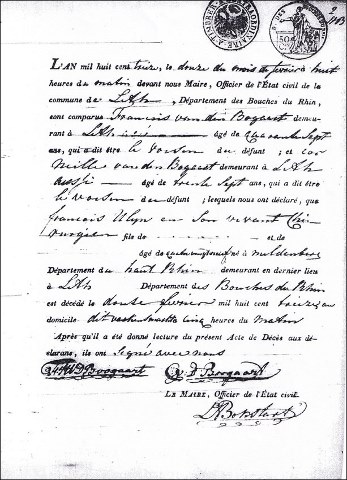 L'AN mil huit cent treize, le douze du mois de fevrier à huit
heures du matin devant nous Maire, Officier de l'État civil de la
commune de Lith, Département des Bouches du Rhin,
sont comparus François van den Bogaart demeu-
rant à Lith âgé de quarante sept
ans, qui a dit être le voisin du défunt; et cor
neille van den Bogaart demeurant à Lith
aussi âgé de trente sept ans, qui a dit être
le voisin du défunt; lesquels nous ont déclaré, que
françois en son vivant Chir
urgien fils de et de
âgé de né à muldenberg
Département du haut Rhin demeurant en dernier lieu
à Lith Département des Bouches du Rhin
est décédé le douze fevrier mil huit cent treize, en
domicile dit cinq heures du matin
Après qu'il a été donné lecture du présent Acte de Décès aux dé-
clarans, ils ont signé avec nous
VD Boogaart D Boogaart
LE MAIRE, Officier de l'État civil.